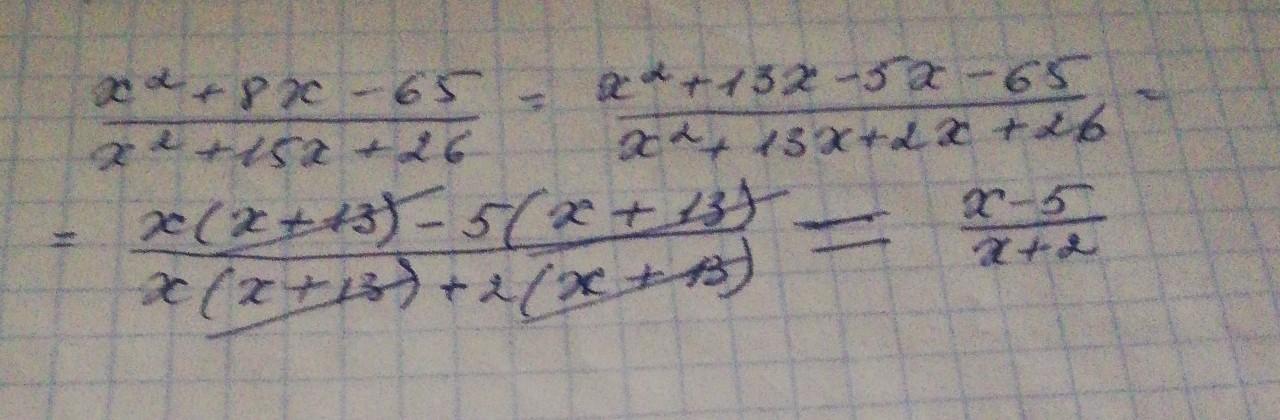 x² + 8x - 65 / x² + 15x + 26 = x² + 13x - 5x - 65 / x² + 13x + 2x + 26 =
= x(x + 13) - 5(x + 13) / x(x + 13) + 2(x + 13) = x - 5 / x + 2